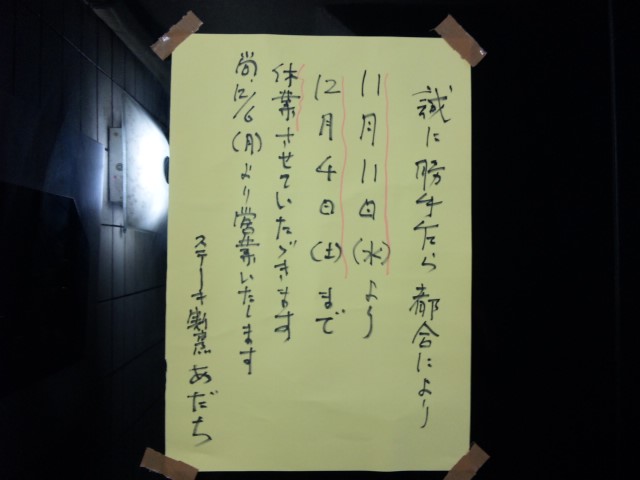 誠に勝手ながら都合により
11月11日(水)より
12月4日(土)まで
休業させていただきます
尚、12/6(月)より営業いたします
ステーキ割烹 あだち